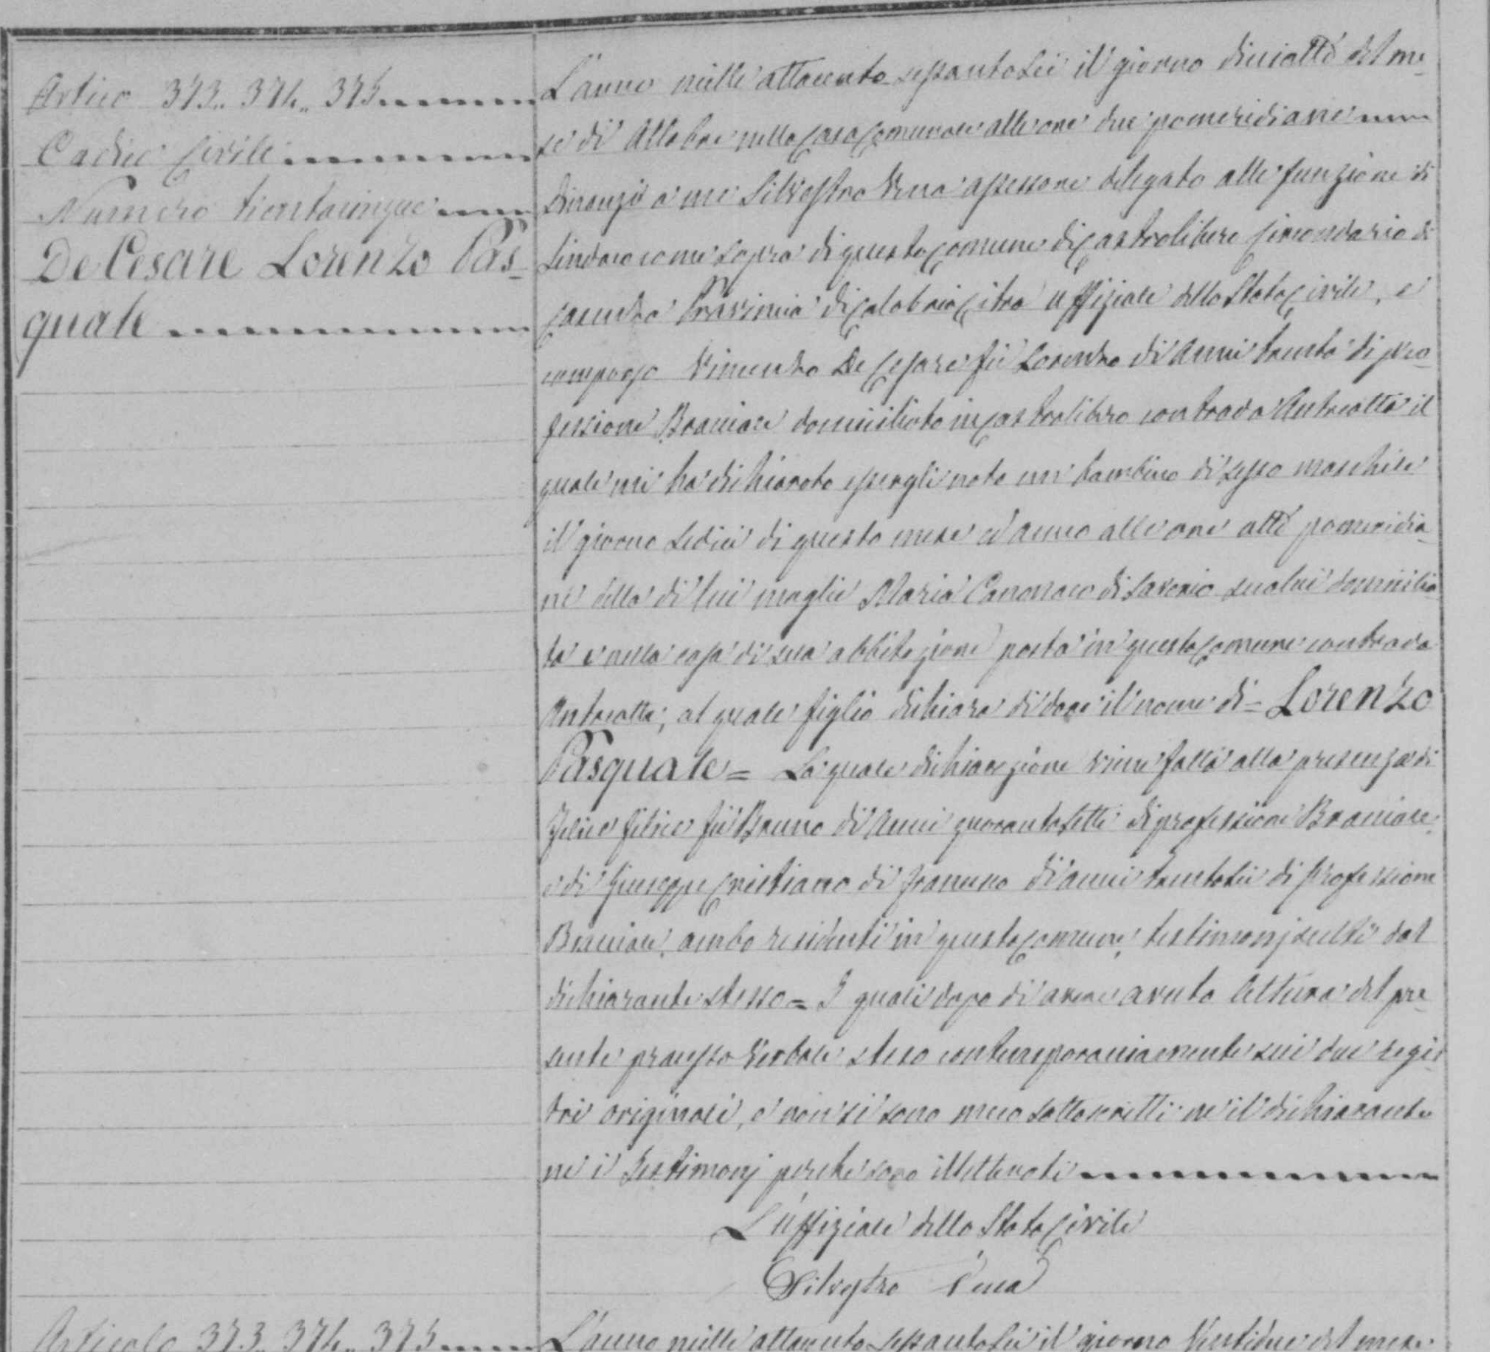 Artico 373.. 374.. 375
Codice Civile
Numero trentacinque
De Cesare Lorenzo Pas-
quale
L'anno mille ottocento sessantasei il giorno diciotto del me-
se di Ottobre nella Casa Comunale alle ore due pomeridiane
Dinanzi a me Silvestro assessore delegato alle funzione di
Sindaco come sopra di questo Comune di Castrolibero Circondario di
Cosenza Provincia di Calabria Citra uffiziale dello Stato Civile, è
comparso Vincenzo De Cesare fù Lorenzo di Anni trenta di pro-
fessione Bracciale domiciliato in Castrolibero contrada il
quale mi ha dichiarato essergli nato un bambino di sesso maschile
il giorno sedici di questo mese ed anno alle ore otto pomeridia-
ne dalla di lui moglie Maria Canonaco di Saverio secolui domicilia-
ta e nella casa di sua abbitazione posta in questo Comune contrada
al quale figlio dichiara di dare il nome di = Lorenzo
Pasquale = La quale dichiarazione viene fatta alla presenza di
Felice Felice fù Bruno di Anni quarantasette di professione Bracciale,
e di Giuseppe Cristiano di di anni trentasei di Professione
Bracciale, ambo residenti in questo Comune, testimonj scelti dal
dichiarante stesso = I quali dopo di avere avuto lettura del pre-
sente processo verbale steso contemporaniamente sui due regis-
tri originali, e non si sono meco sottoscritti ne il dichiarante
ne i Testimonj perche sono illetterati
L'uffiziale dello Stato Civile
Silvestro
Articolo 373.. 374.. 375
L'anno mille ottocento sessantasei il giorno Ventidue del mese